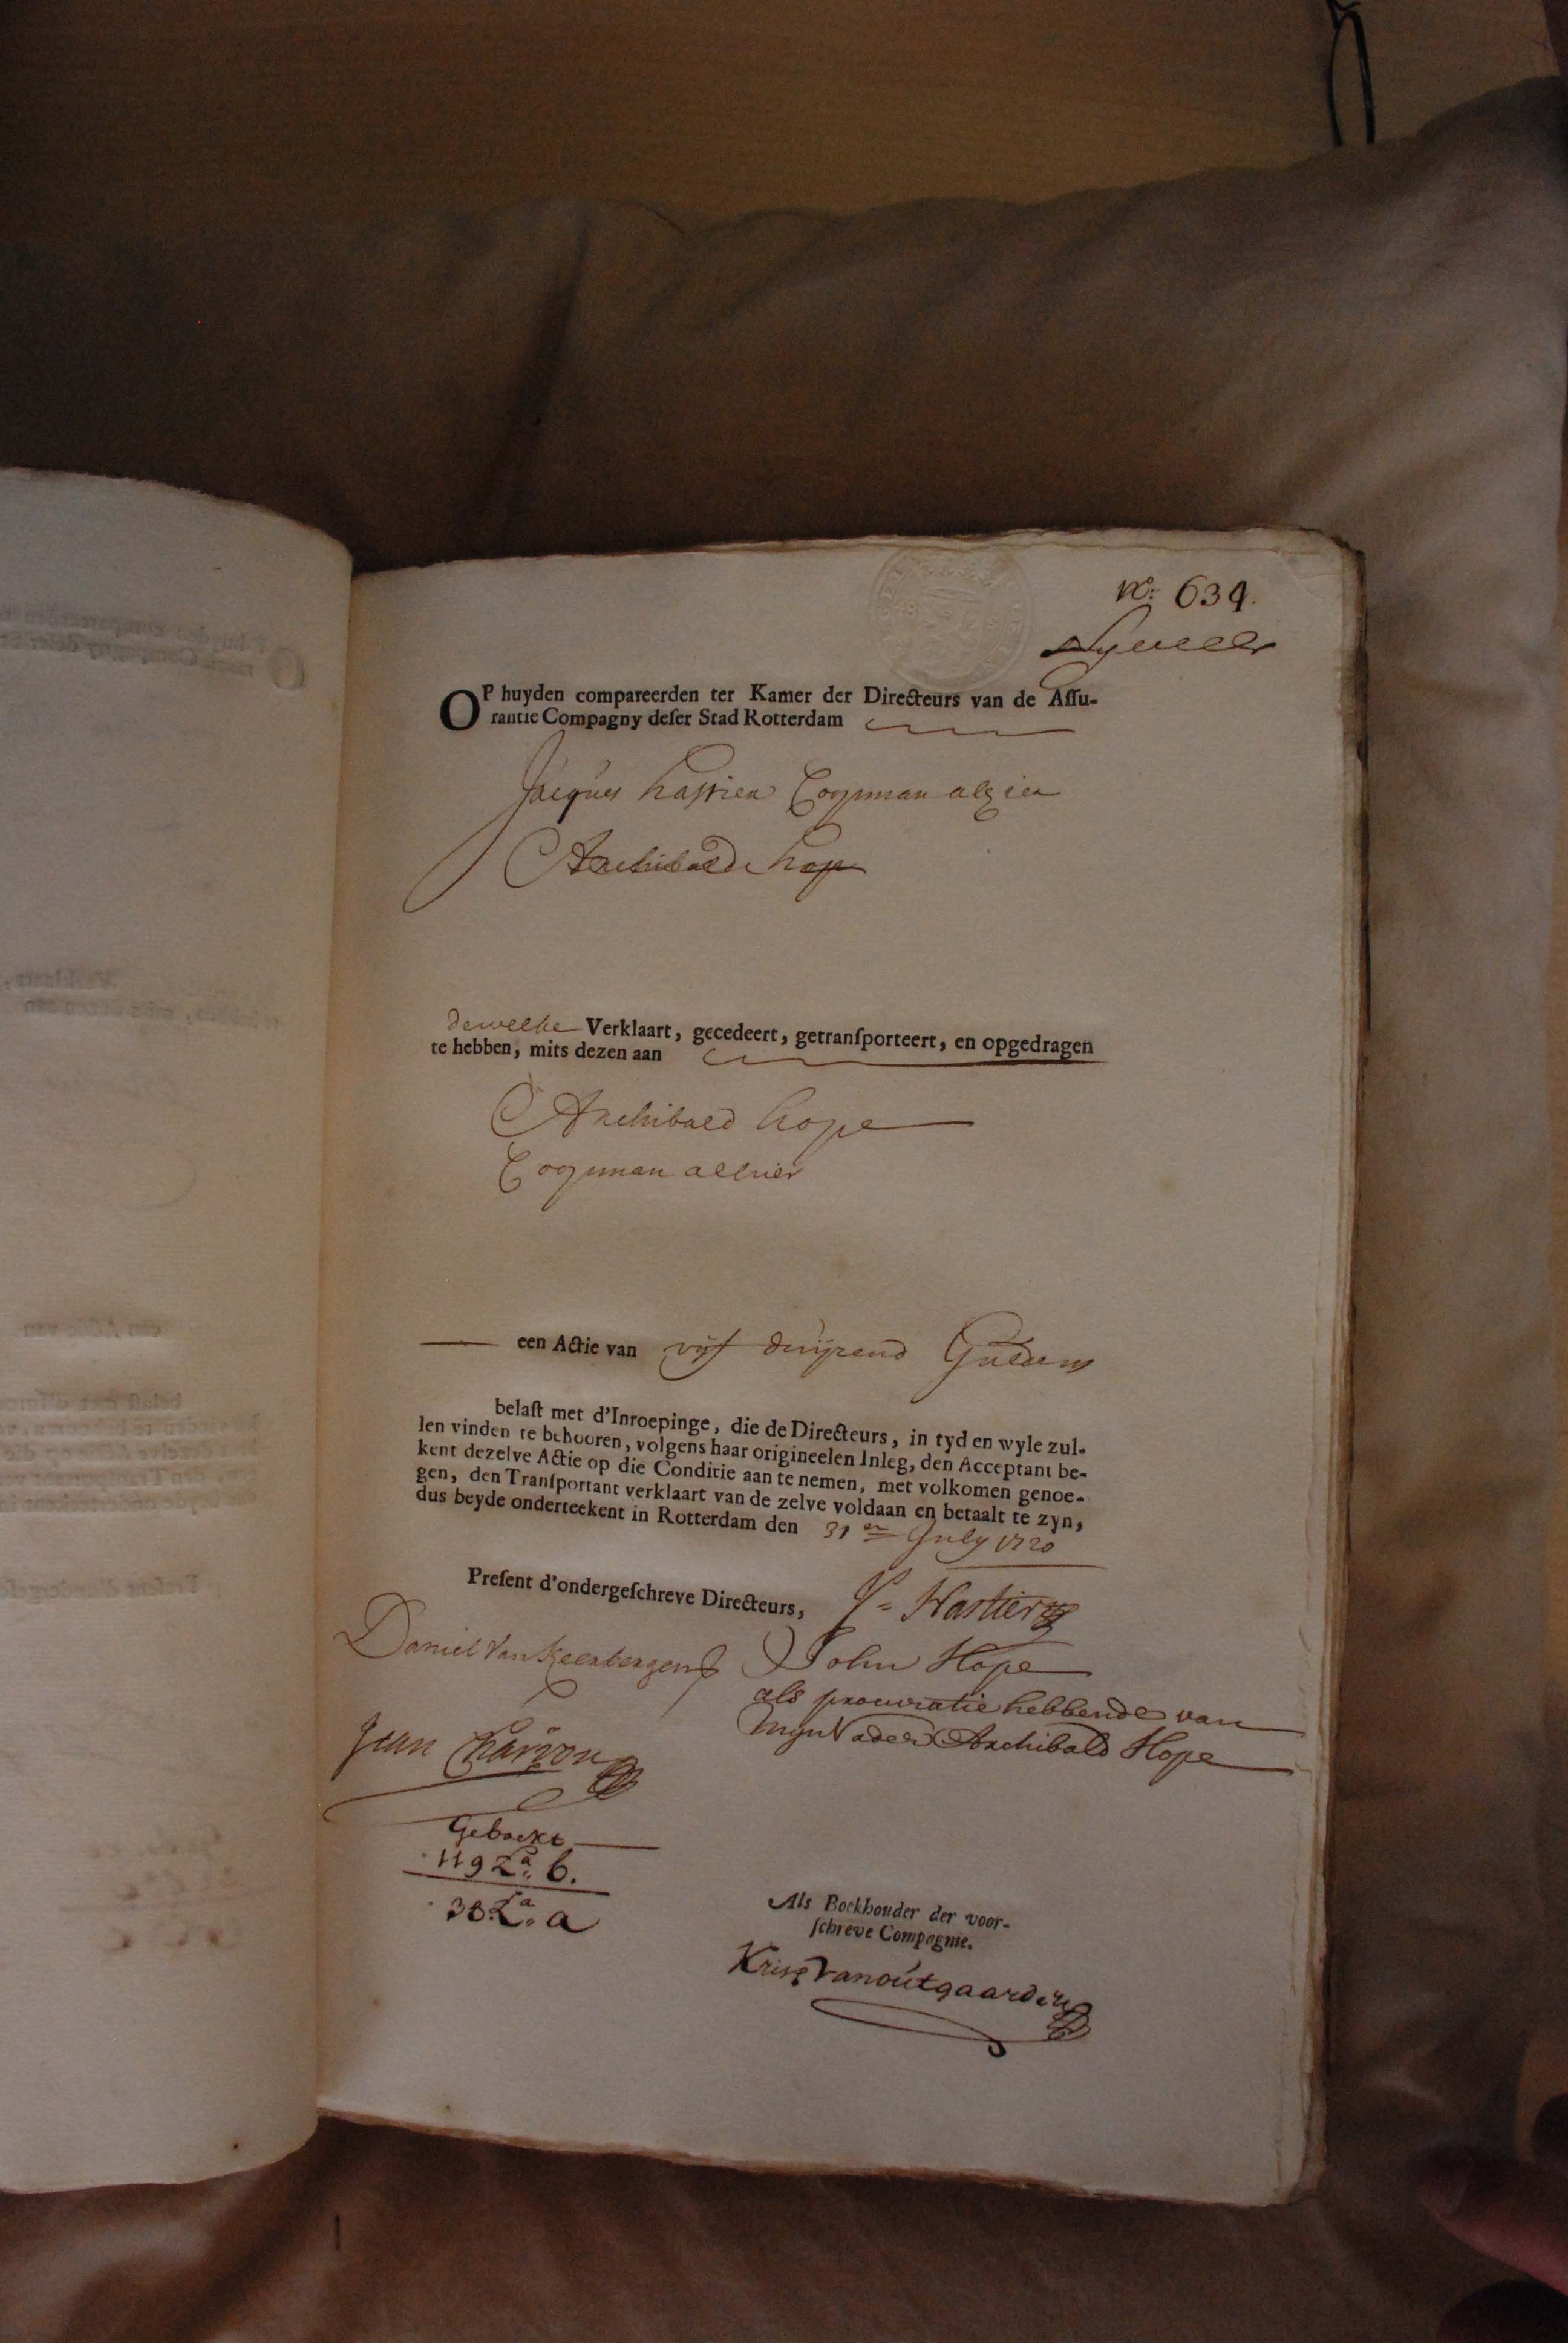 No: 634.
OP huyden compareerden ter Kamer der Directeurs van de Aſſu-
rantie Compagny deſer Stad Rotterdam
Jacques hastier Coopman alhier
Archibald hop
dewelke Verklaart, gecedeert, getranſporteert, en opgedragen
te hebben, mits dezen aan
Archibald hope
Coopman alhier
een Actie van vijf duijzend Guldens
belaſt met d'Inroepinge, die de Directeurs, in tyd en wyle zul-
len vinden te behooren, volgens haar origineelen Inleg, den Acceptant be-
kent dezelve Actie op die Conditie aan te nemen, met volkomen genoe-
gen, den Tranſportant verklaart van de zelve voldaan en betaalt te zyn,
dus beyde onderteekent in Rotterdam den 31en July 1720
Preſent d'ondergeſchreve Directeurs,
Js= Hastier
Daniel Van Keerbergen
John Hope
als procuratie hebbende van
Mijn Vader Archibald Hope
Jean Chäron
Geboekt
119 La: b.
38 La: a
Als Boekhouder der voor-
ſchreve Compagnie.
Kris Vanoutgaarden